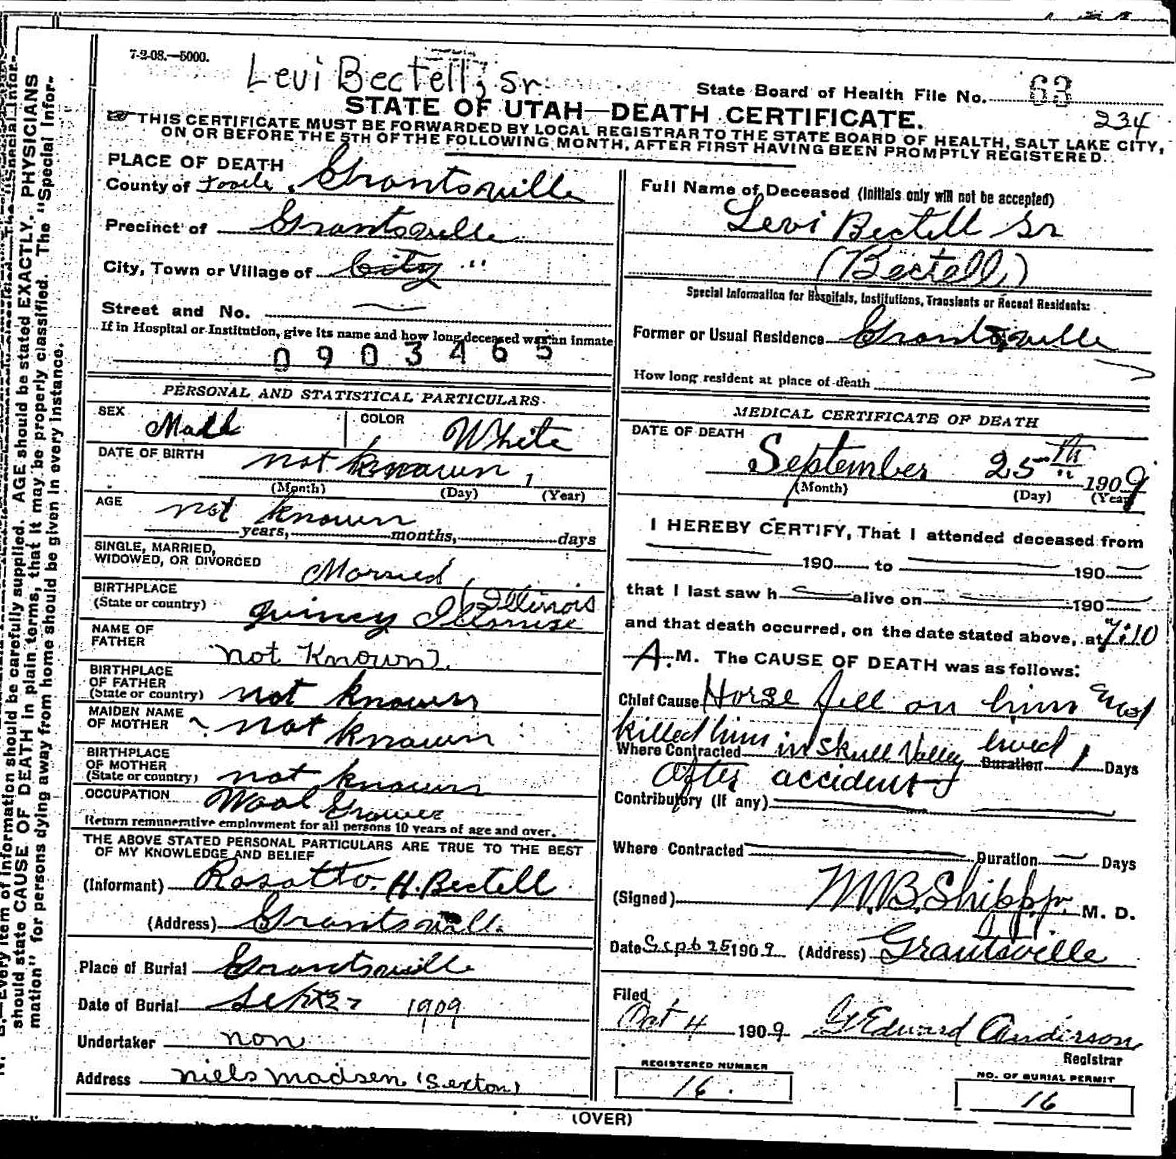 7-2-08.—5000.
Levi Bectell, Sr
State Board of Health File No. 63
234
STATE OF UTAH—DEATH CERTIFICATE.
THIS CERTIFICATE MUST BE FORWARDED BY LOCAL REGISTRAR TO THE STATE BOARD OF HEALTH, SALT LAKE CITY,
ON OR BEFORE THE 5TH OF THE FOLLOWING MONTH, AFTER FIRST HAVING BEEN PROMPTLY REGISTERED.
PLACE OF DEATH
County of Tooele. Grantsville
Precinct of Grantsville
City, Town or Village of City "
Street and No.
If in Hospital or Institution, give its name and how long deceased was an inmate
0903465
PERSONAL AND STATISTICAL PARTICULARS
SEX Male COLOR White
DATE OF BIRTH not known
(Month) (Day) (Year)
AGE not known
years, months, days
SINGLE, MARRIED,
WIDOWED, OR DIVORCED Married
BIRTHPLACE (Illinois
(State or country) Quincy
NAME OF
FATHER not Known
BIRTHPLACE
OF FATHER
(State or country) not known
MAIDEN NAME
OF MOTHER not known
BIRTHPLACE
OF MOTHER
(State or country) not known
OCCUPATION Wool Grower
Return remunerative employment for all persons 10 years of age and over.
THE ABOVE STATED PERSONAL PARTICULARS ARE TRUE TO THE BEST
OF MY KNOWLEDGE AND BELIEF
(Informant) H. Bectell
(Address) Grantsville
Place of Burial Grantsville
Date of Burial Sept 27 1909
Undertaker non
Address niels madsen (Sexton)
Full Name of Deceased (Initials only will not be accepted)
Levi Bectell Sr
(Bectell)
Special Information for Hospitals, Institutions, Transients or Recent Residents:
Former or Usual Residence Grantsville
How long resident at place of death
MEDICAL CERTIFICATE OF DEATH
DATE OF DEATH
September 25th 1909
(Month) (Day) (Year)
I HEREBY CERTIFY, That I attended deceased from
190 to 190
that I last saw h alive on 190
and that death occurred, on the date stated above, at 7:10
A. M. The CAUSE OF DEATH was as follows:
Chief Cause Horse fell on him and
killed him in Skull Valley lived 1
Where Contracted Duration Days
After accident
Contributory (if any)
Where Contracted Duration Days
(Signed) M.B. Shipp jr. M. D.
Date Sept 25 1909 (Address) Grantsville
Filed
Oct 4 1909 G Edward Anderson
Registrar
REGISTERED NUMBER
16.
NO. OF BURIAL PERMIT
16
(OVER)
N. B.—Every item of information should be carefully supplied. AGE should be stated EXACTLY. PHYSICIANS
should state CAUSE OF DEATH in plain terms, that it may be properly classified. The "Special Infor-
mation" for persons dying away from home should be given in every instance.